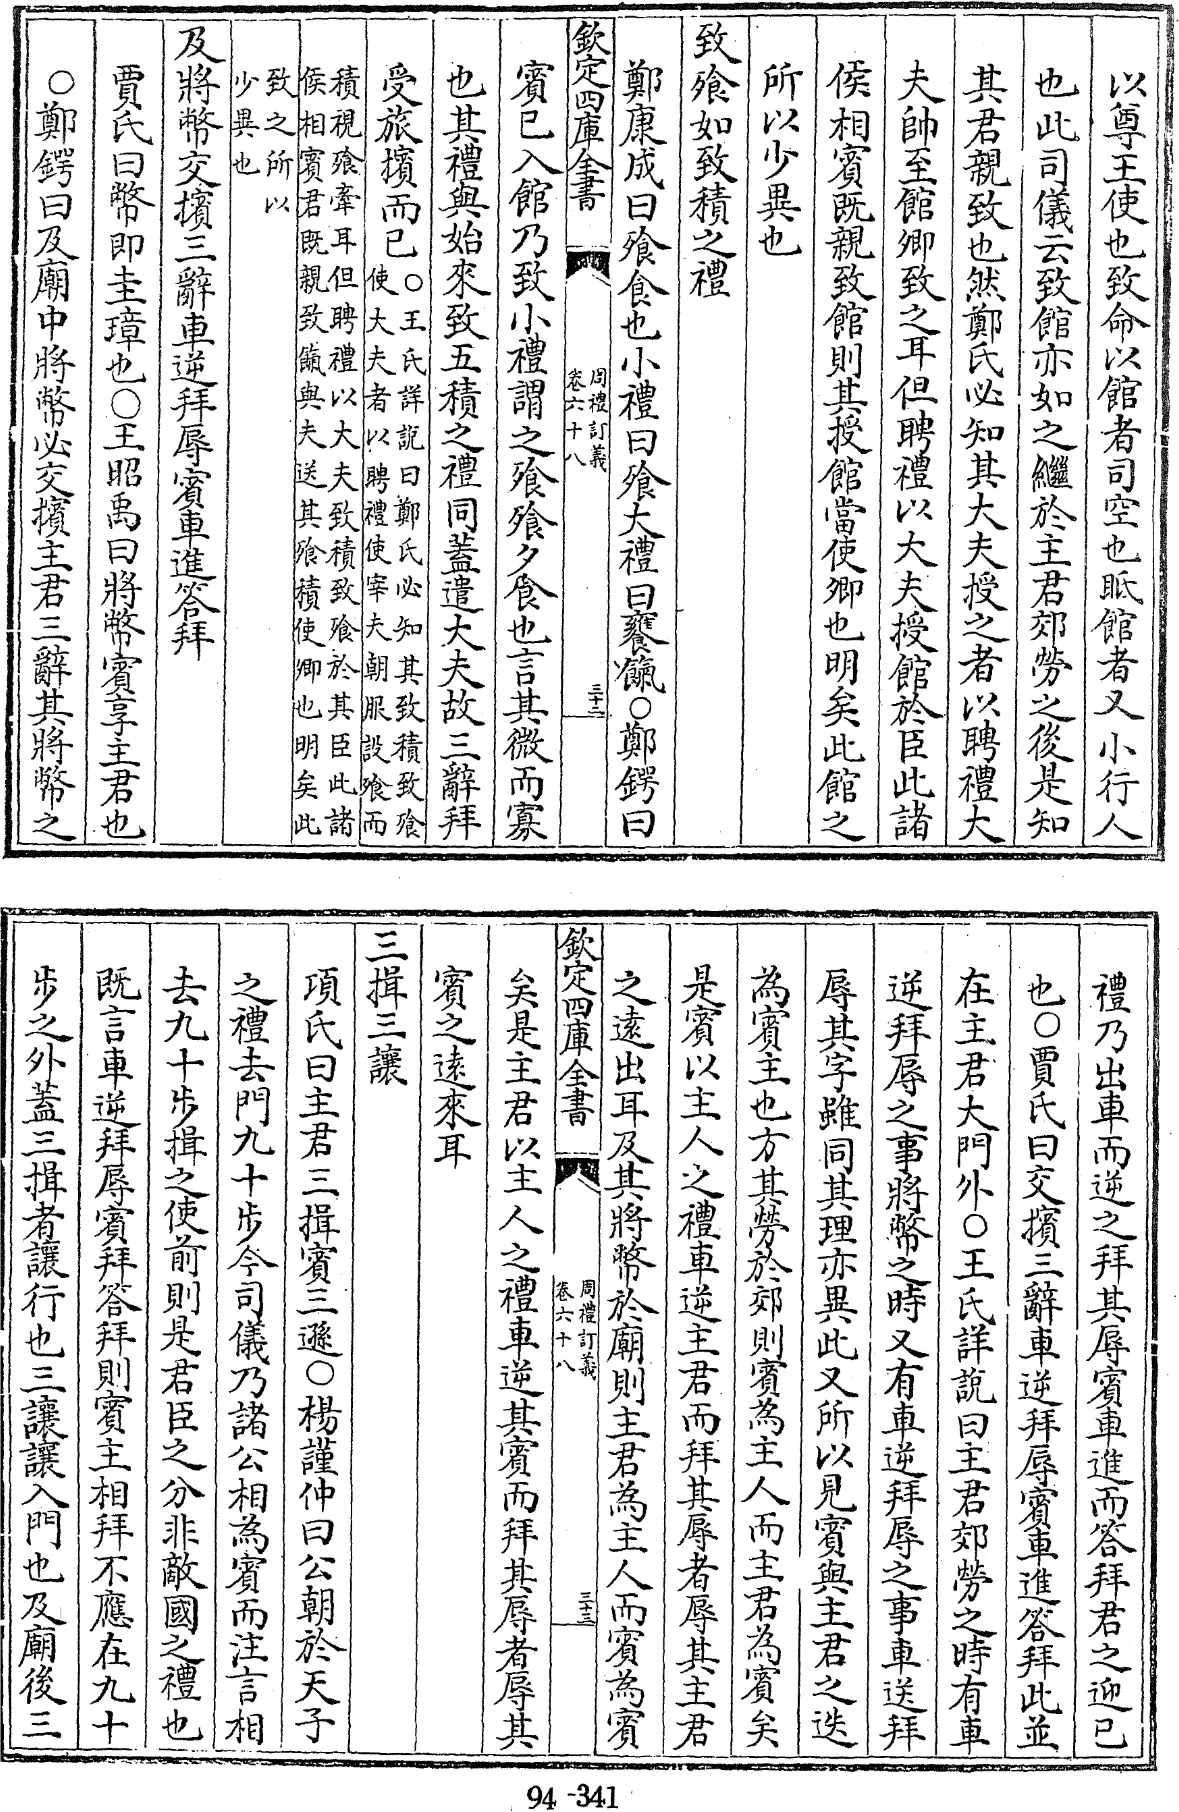 以尊王使也致命以館者司空也眡館者又小行人
也此司儀云致館亦如之繼於主君郊勞之後是知
其君親致也然鄭氏必知其大夫授之者以聘禮大
夫帥至館卿致之耳但聘禮以大夫授館於臣此諸
侯相賔既親致館則其授館當使卿也明矣此館之
所以少異也
致飱如致積之禮
鄭康成曰飱食也小禮曰飱大禮曰饔餼○鄭鍔曰
欽定四庫全書
周禮訂義
卷六十八
三十二
賔已入館乃致小禮謂之飱飱夕食也言其微而寡
也其禮與始來致五積之禮同蓋遣大夫故三辭拜
受旅擯而已○王氏詳說曰鄭氏必知其致積致飱
使大夫者以聘禮使宰夫朝服設飱而
積視飱牽耳但聘禮以大夫致積致飱於其臣此諸
侯相賔君既親致餼與夫送其飱積使卿也明矣此
致之所以
少異也
及將幣交擯三辭車逆拜辱賔車進答拜
賈氏曰幣即圭璋也○王昭禹曰將幣賔享主君也
○鄭鍔曰及廟中將幣必交擯主君三辭其將幣之
禮乃出車而逆之拜其辱賔車進而答拜君之迎已
也○賈氏曰交擯三辭車逆拜辱賔車進答拜此並
在主君大門外○王氏詳說曰主君郊勞之時有車
逆拜辱之事將幣之時又有車逆拜辱之事車送拜
辱其字雖同其理亦異此又所以見賔與主君之迭
為賔主也方其勞於郊則賔為主人而主君為賔矣
是賔以主人之禮車逆主君而拜其辱者辱其主君
之遠出耳及其將幣於廟則主君為主人而賔為賔
欽定四庫全書
周禮訂義
卷六十八
三十三
矣是主君以主人之禮車逆其賔而拜其辱者辱其
賔之遠來耳
三揖三讓
項氏曰主君三揖賔三遜○楊謹仲曰公朝於天子
之禮去門九十步今司儀乃諸公相為賔而注言相
去九十步揖之使前則是君臣之分非敵國之禮也
既言車逆拜辱賔拜答拜則賔主相拜不應在九十
步之外蓋三揖者讓行也三讓讓入門也及廟後三
94-341